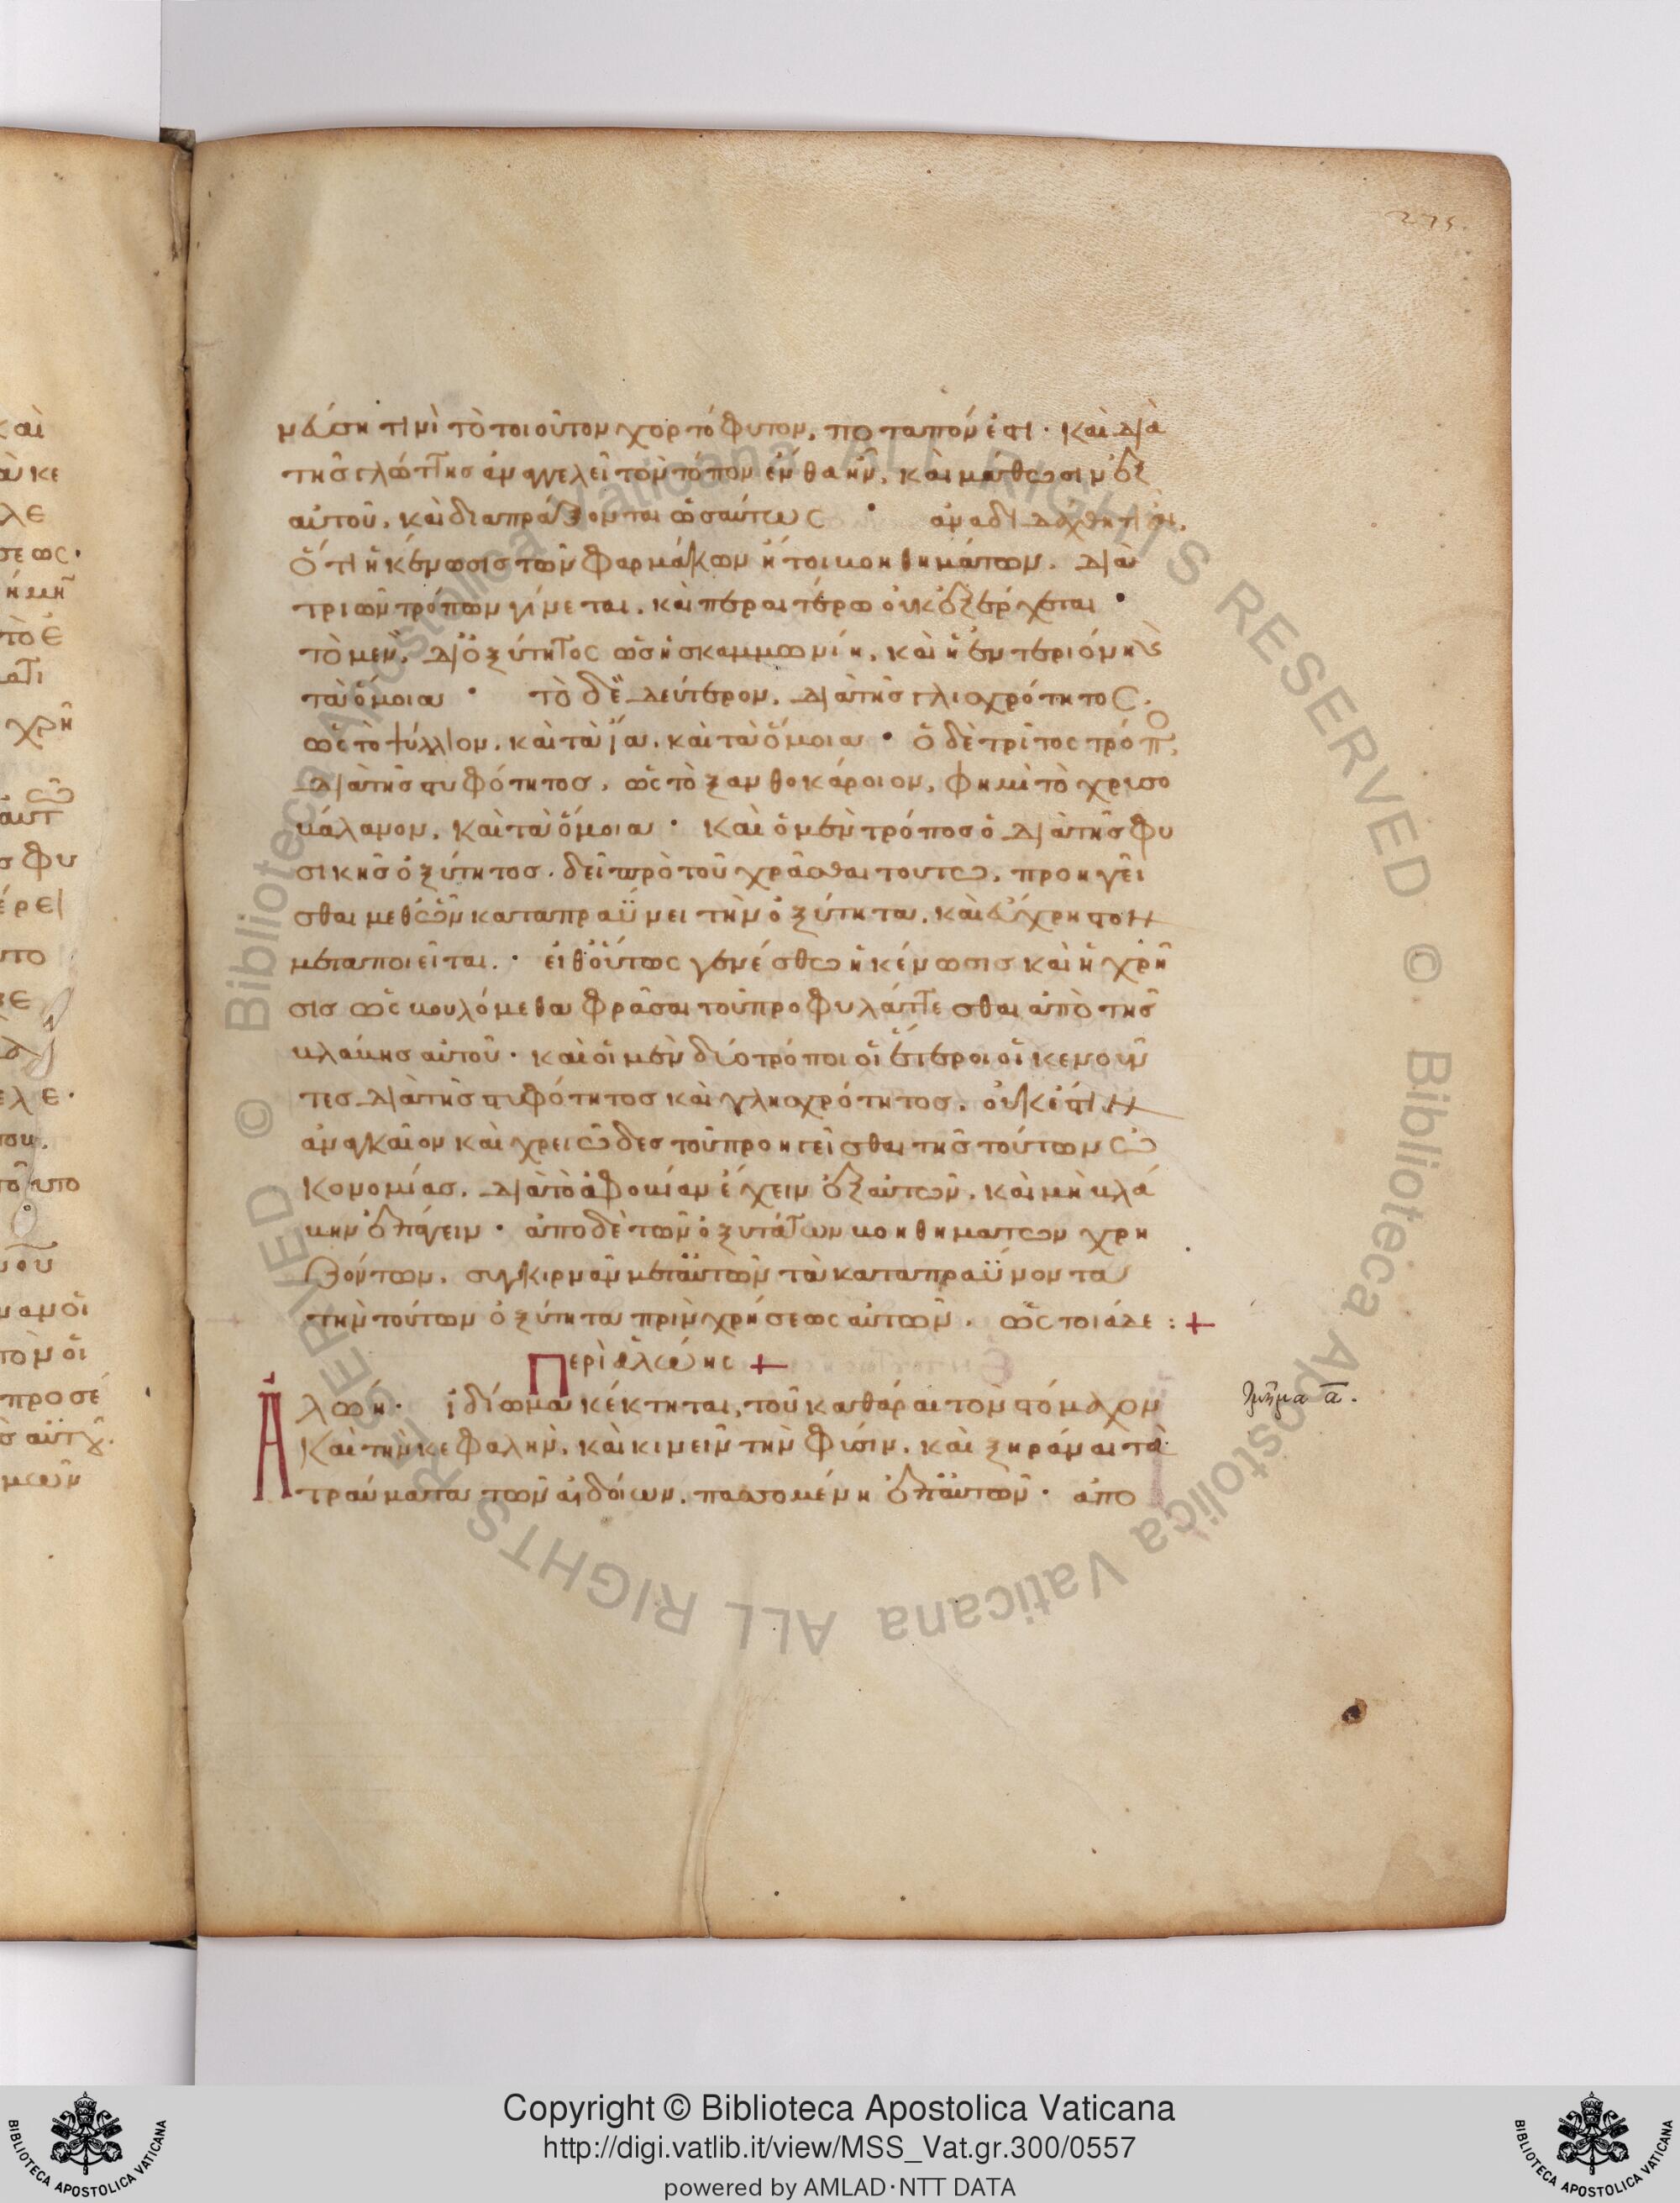 275.
νάση τινὶ τὸ τοιοῦτον χορτόφυτον, ποταπόν ἐστι· καὶ διὰ
τῆς γλώττης ἀναγγελεῖ τὸν τόπον ἔνθα ἦν, καὶ μάθωσιν ἐξ
αὐτοῦ, καὶ διαπράξονται ὡσαύτως · ἀναδιδαχθητέαι,
ὅτι ἡ κένωσις τῶν φαρμάκων ἤτοι βοηθημάτων, διὰ
τριῶν τρόπων γίνεται, καὶ περαιτέρω οὐκ ἐξέρχεται ·
τὸ μὲν, δι' ὀξύτητος ὡς ἡ σκαμμωνίη, καὶ ἡ ἐντεριόνη καὶ
τὰ ὅμοια · τὸ δὲ δεύτερον, διὰ τῆς γλισχρότητος.
ὡς τὸ ψύλλιον, καὶ τὰ ἴα, καὶ τὰ ὅμοια · ὁ δὲ τρίτος τρόπο,
διὰ τῆς στυφότητος, ὡς τὸ ξανθοκάροιον, φημὶ τὸ χρυσο
βάλανον, καὶ τὰ ὅμοια · καὶ ὁ μὲν τρόπος ὁ διὰ τῆς φυ
σικῆς ὀξύτητος. δεῖ πρὸ τοῦ χρᾶσθαι τούτω, προηγεῖ
σθαι μεθ' ὧν καταπραΰνει τὴν ὀξύτητα, καὶ εὔχρηστον
μεταποιεῖται. · εἶθ' οὕτως γενέσθω ἡ κένωσις καὶ ἡ χρῆ
σις ὡς βουλόμεθα φρᾶσαι τοῦ προφυλάττεσθαι ἀπὸ τῆς
βλάβης αὐτοῦ · καὶ οἱ μὲν δύο τρόποι οἱ ἕτεροι οἱ κενοῦν
τες διὰ τῆς στυφότητος καὶ γλησχρότητος, οὐκ ἔστιν
ἀναγκαῖον καὶ χρειῶδες τοῦ προηγεῖσθαι τῆς τούτων ὠ
κονομίας, διὰ τὸ ἀφοβίαν ἔχειν ἐξ αὐτῶν, καὶ μὴ βλά
βην ἐπάγειν · ἀπὸ δὲ τῶν ὀξυτάτων βοηθημάτων χρη
ζόντων, συγκιρνᾶν μετ' αὐτῶν τὰ καταπραΰνοντα
τὴν τούτων ὀξύτητα πρὶν χρήσεως αὐτῶν. ὡς τοιάδε : +
Περὶ ἀλώης +
Ἀλώη · ἰδίωμα κέκτηται, τοῦ καθάραι τὸν στόμαχον
καὶ τὴν κεφαλὴν, καὶ κινεῖν τὴν φύσιν, καὶ ξηράναι τὰ
τραύματα τῶν αἰδοίων, πασσομένη ἐπ' αὐτῶν · ἀπο
Copyright © Biblioteca Apostolica Vaticana
http://digi.vatlib.it/view/MSS_Vat.gr.300/0557
powered by AMLAD·NTT DATA